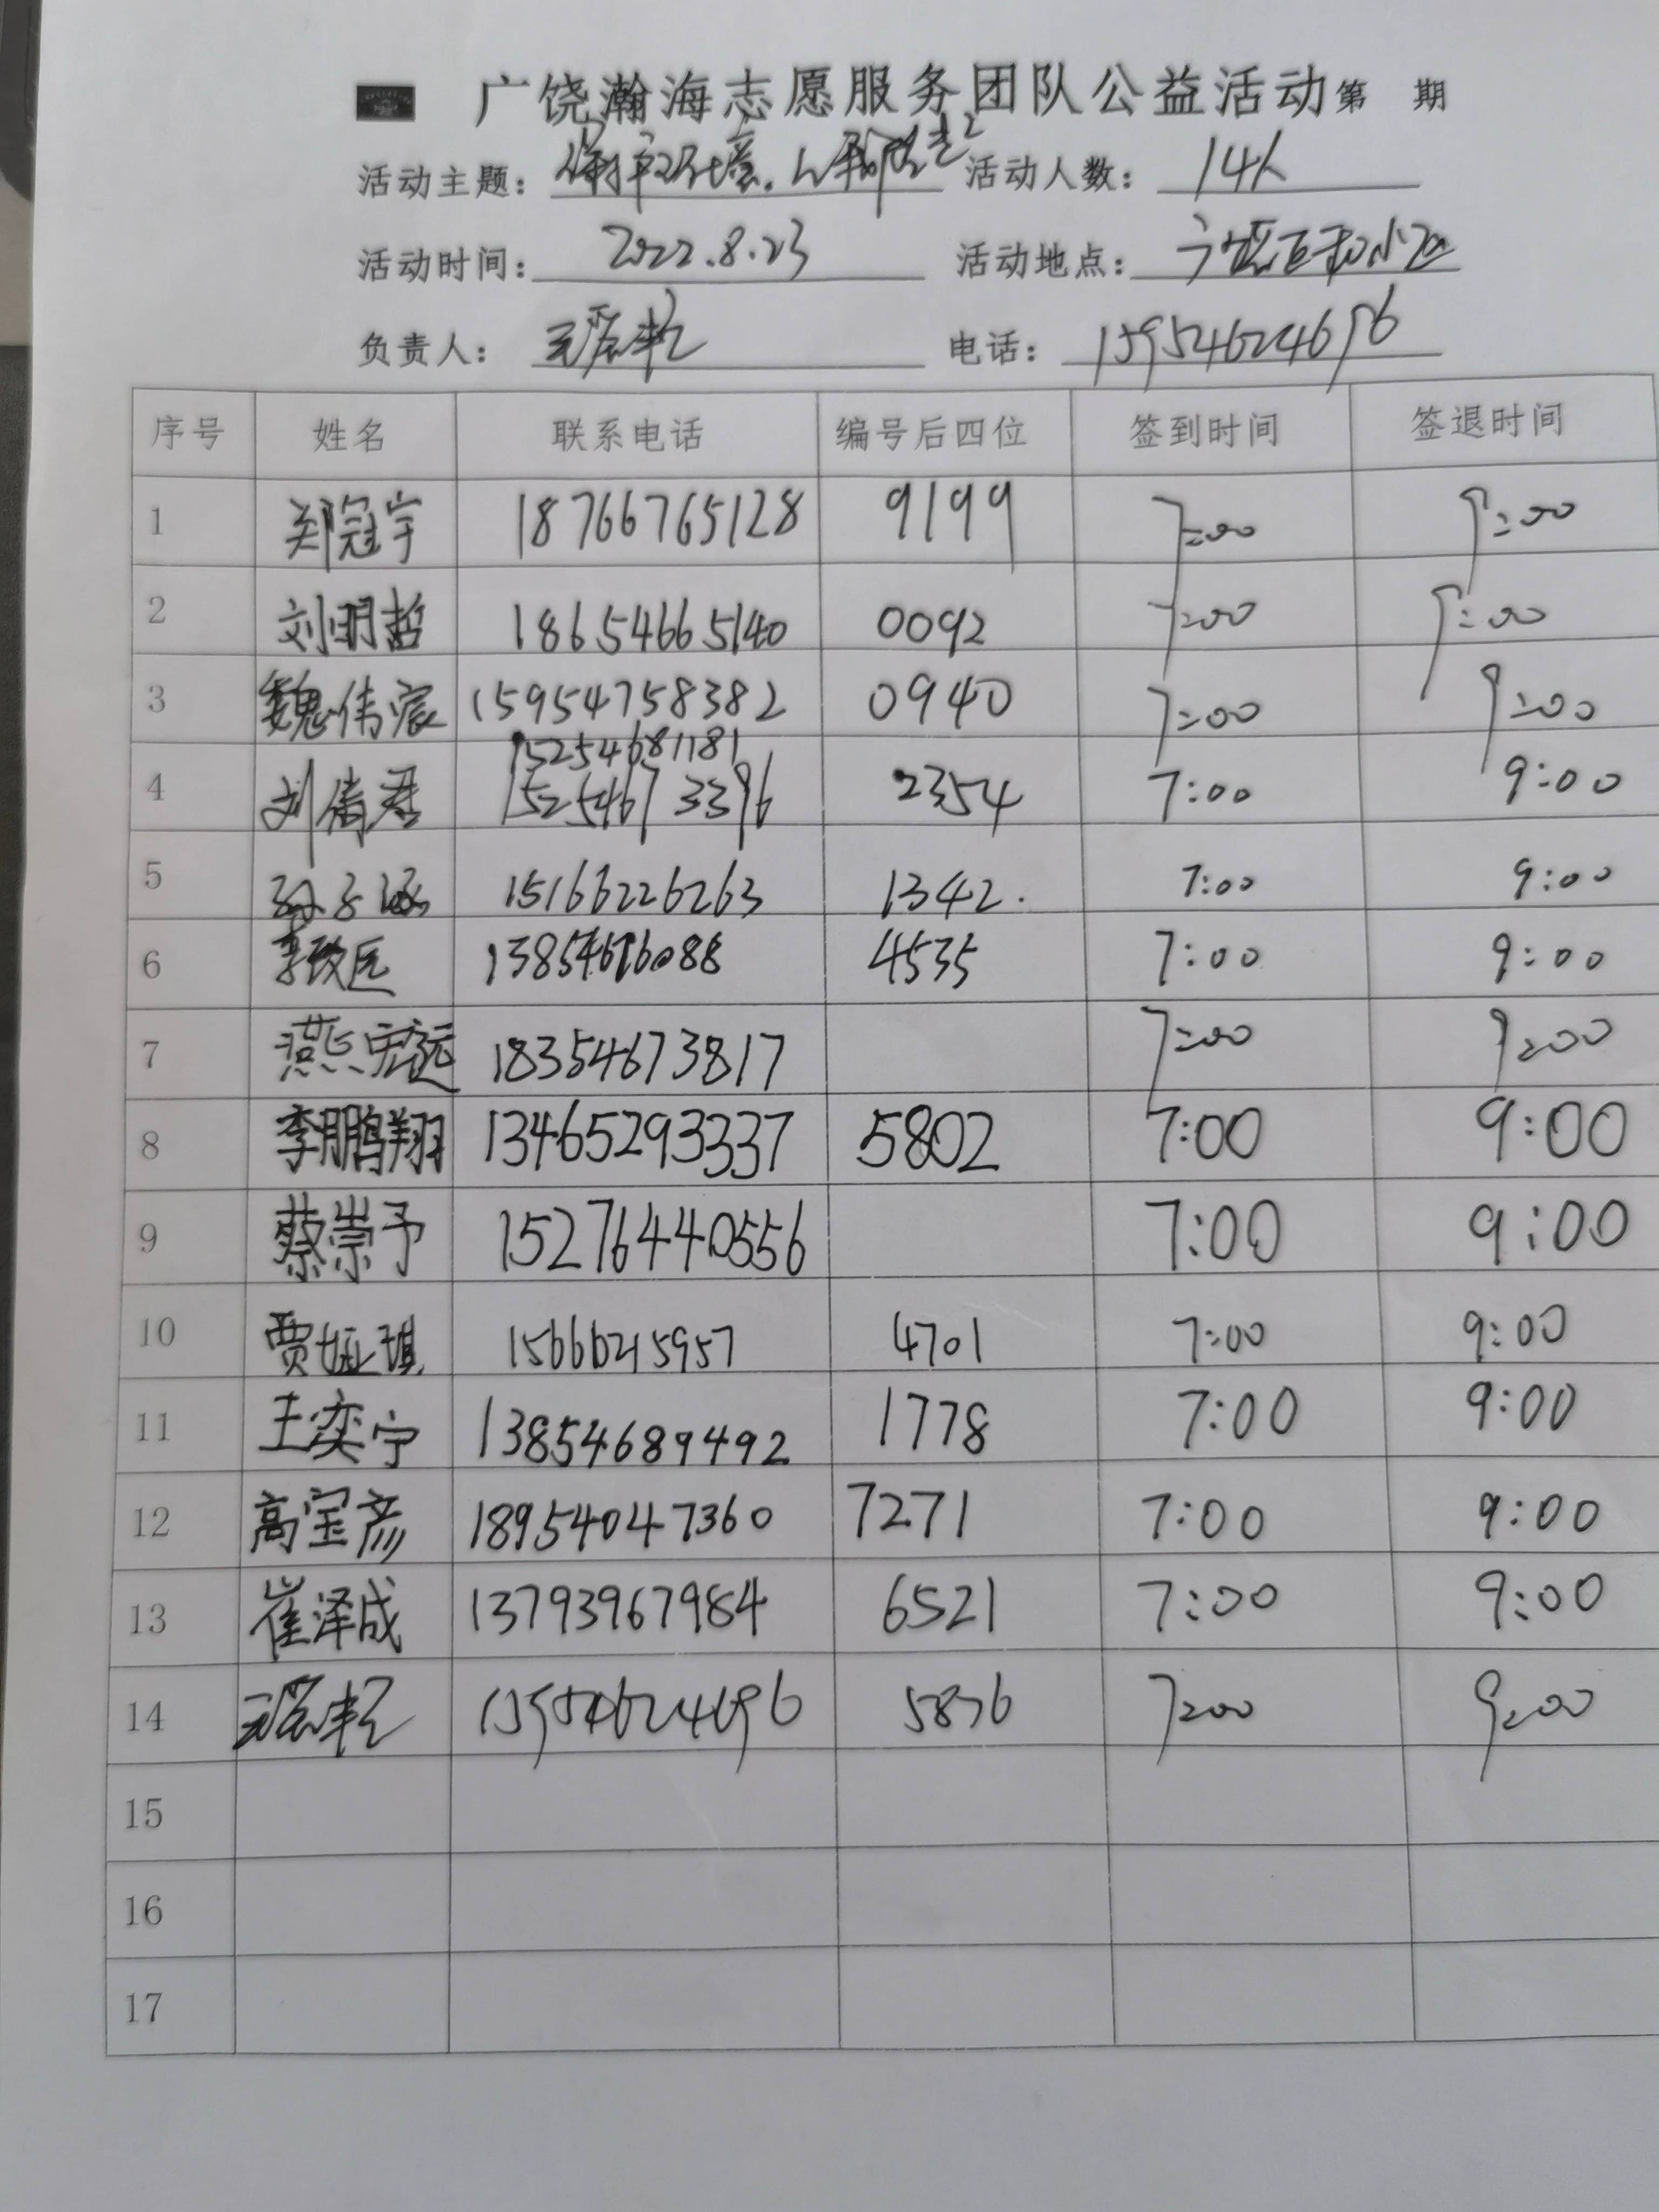 广饶瀚海志愿服务团队公益活动第 期
活动主题： 活动人数：14人
活动时间：2022.8.23 活动地点：广饶 小区
负责人： 电话：15954624696
序号 姓名 联系电话 编号后四位 签到时间 签退时间
1 郑冠宇 18766765128 9199 7:00 9:00
2 刘明哲 18654665140 0092 7:00 9:00
3 魏伟宸 15954758382 0940 7:00 9:00
15254681181
4 刘倩君 15254673396 2354 7:00 9:00
5 孙子涵 15166226263 1342. 7:00 9:00
6 李政匡 4535 7:00 9:00
7 燕宏远 18354673817 7:00 9:00
8 李鹏翔 13465293337 5802 7:00 9:00
9 蔡崇予 15276440556 7:00 9:00
10 贾娅琪 15666215957 4701 7:00 9:00
11 王奕宁 13854689492 1778 7:00 9:00
12 高宝彦 18954047360 7271 7:00 9:00
13 崔泽成 13793967984 6521 7:00 9:00
14 15954624696 5836 7:00 9:00
15
16
17